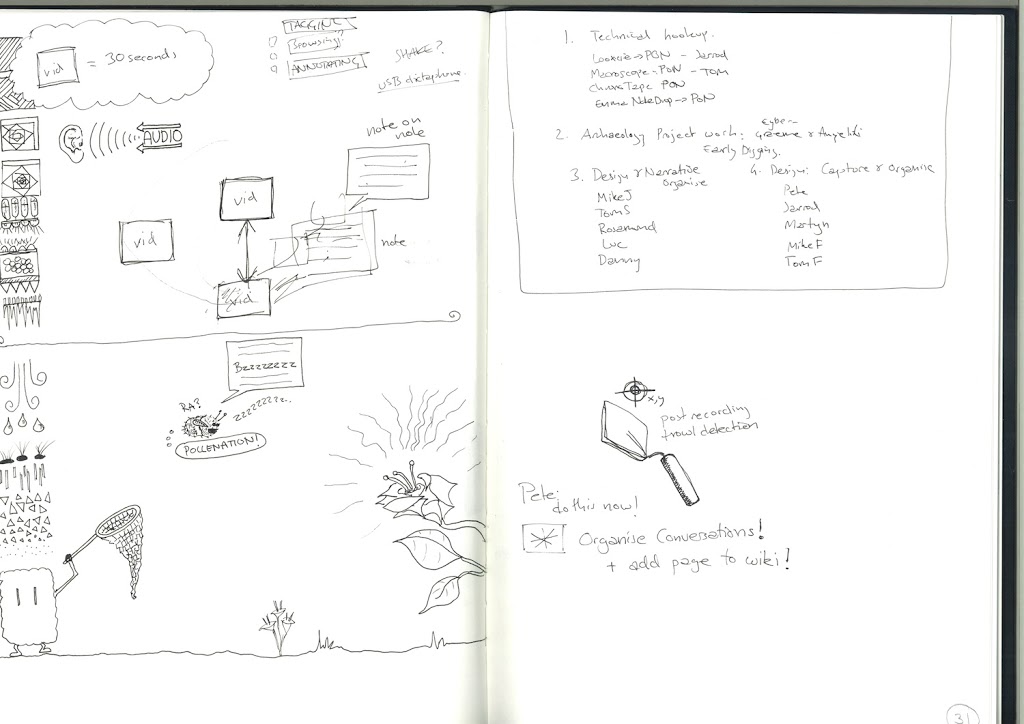 vid
= 30 seconds
TAGGING
BROWSING?
ANNOTATING
SHAKE?
USB dictaphone.
AUDIO
note on
note
vid
vid
note
vid
Bzzzzzzzz
RA?
zzzzzzzz..
POLLENATION!
1. Technical hookup.
→ PON - Jarrod
Macroscope - PON - TOM
Tape PON
Emma NoteDrop → PON
2. Archaeology Project work: Graeme & Angeliki
Early Digging.
3. Design & Narrative
organise
Mike J
Tom S
Rosamund
Luc
Danny
4. Design: Capture & Organise
Pete
Jarrod
Martyn
Mike F
Tom F
x,y
post recording
trowl detection
Pete:
do this now!
Organise Conversations!
+ add page to wiki!
31